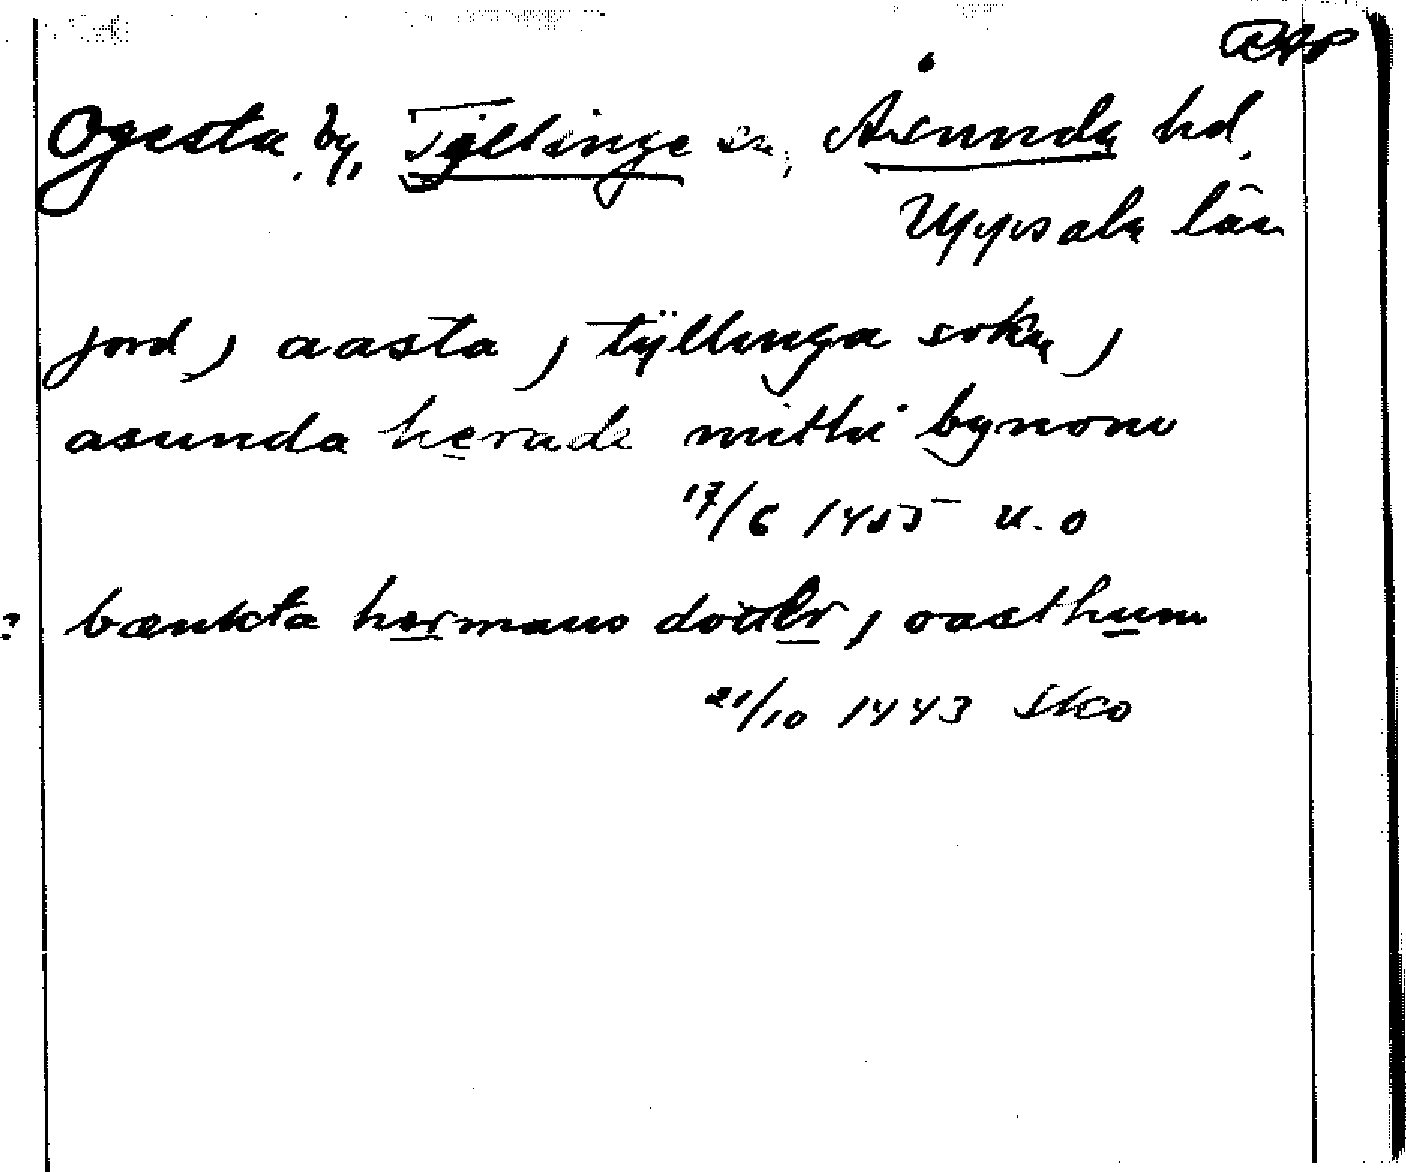 Ogesta, by, Tillinge sn, Åsunda hd,
Uppsala län
jord ) aasta ) tÿllinga sokn )
asunda herade mitht bynom
17/6 1455 u. o
? bænkta hermans dotter, oasthum
21/10 1443 Sko